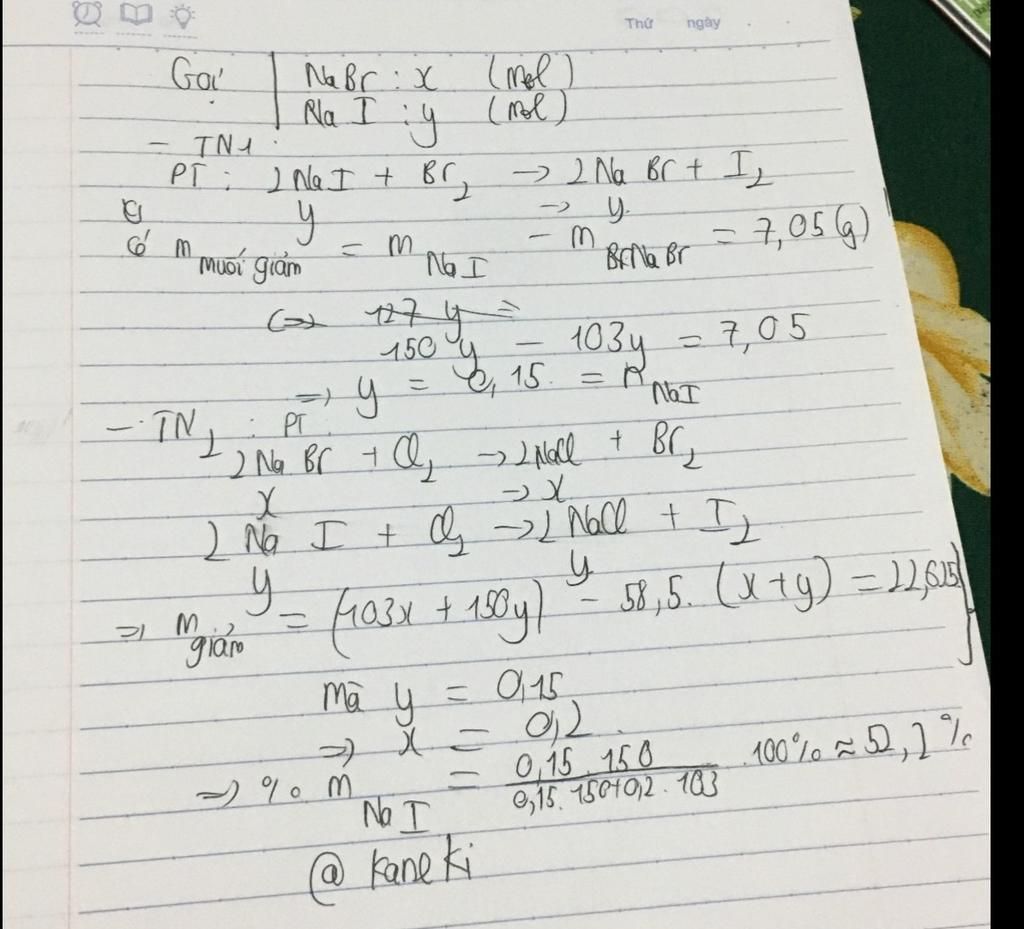 Thứ ngày
Gọi | NaBr : x (mol)
NaI : y (mol)
- TN1 :
PT : 2NaI + Br2 → 2NaBr + I2
y → y
Có m muối giảm = m NaI - m NaBr = 7,05 (g)
<=> 127 y =
150 y - 103y = 7,05
=> y = 0,15 = n NaI
- TN2 : PT :
2NaBr + Cl2 → 2NaCl + Br2
x → x
2NaI + Cl2 → 2NaCl + I2
y y
=> m giảm = (103x + 150y) - 58,5. (x+y) = 22,625
Mà y = 0,15
=> x = 0,2
=> % m NaI = 0,15 . 150 / 0,15.150+0,2.103 . 100% ≈ 52,2 %
@ kaneki